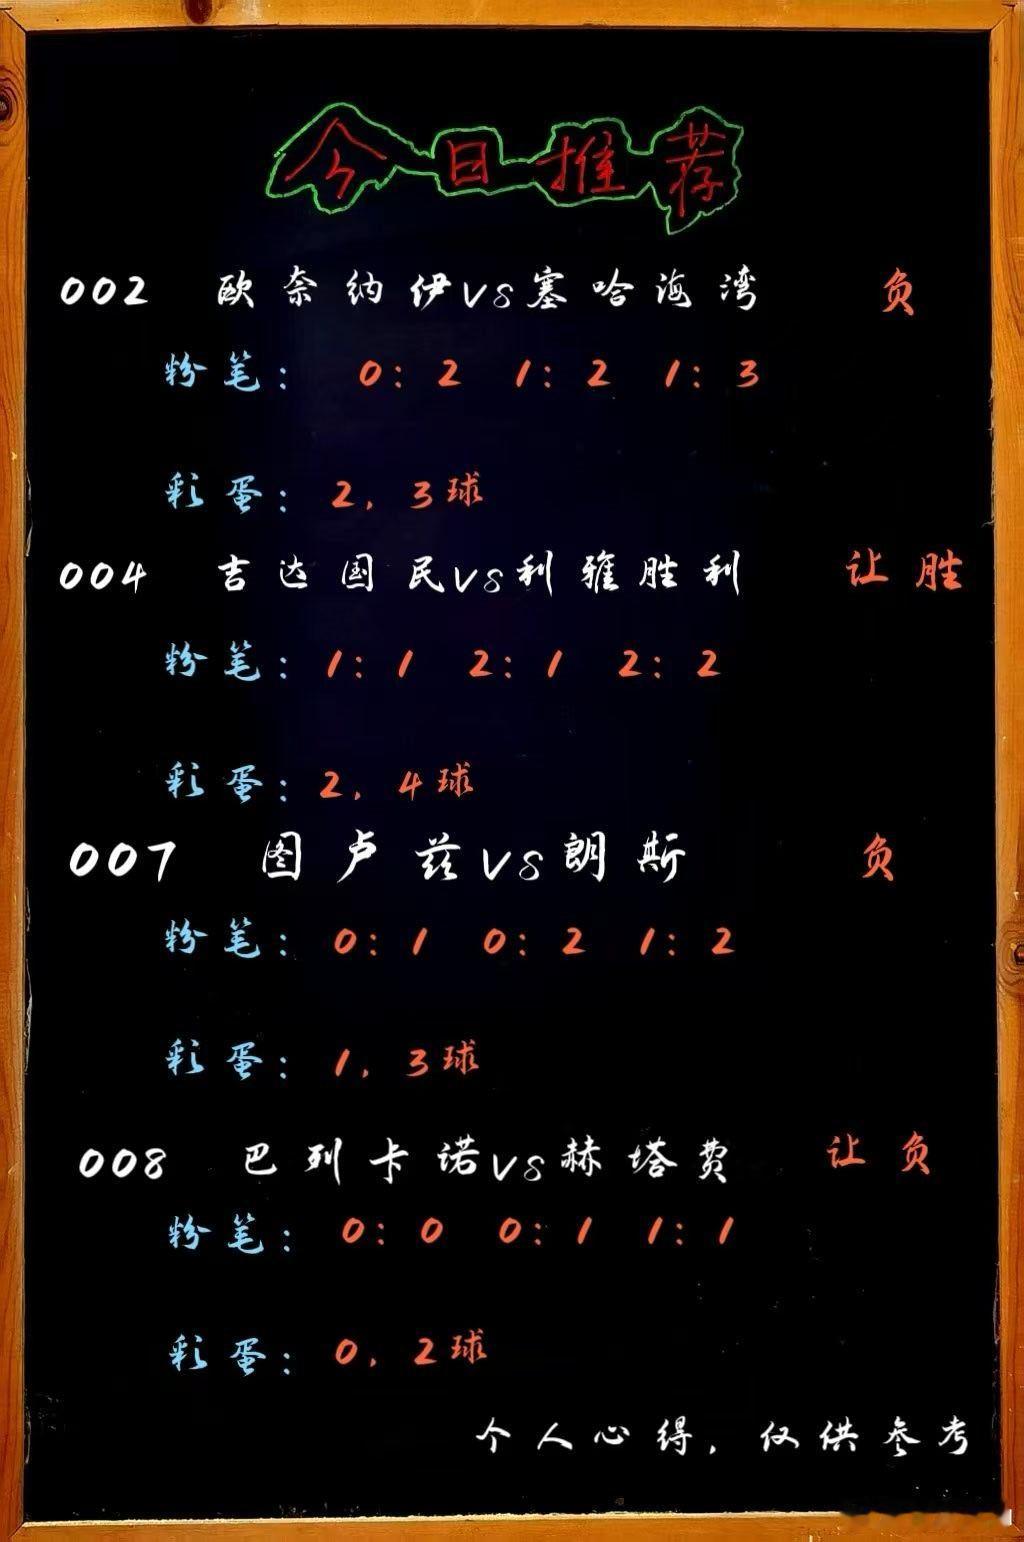 今日推荐
002 欧奈纳伊vs塞哈海湾 负
粉笔： 0：2 1：2 1：3
彩蛋：2，3球
004 吉达国民vs利雅胜利 让胜
粉笔：1：1 2：1 2：2
彩蛋：2，4球
007 图卢兹vs朗斯 负
粉笔：0：1 0：2 1：2
彩蛋：1，3球
008 巴列卡诺vs赫塔费 让负
粉笔：0：0 0：1 1：1
彩蛋：0，2球
个人心得，仅供参考